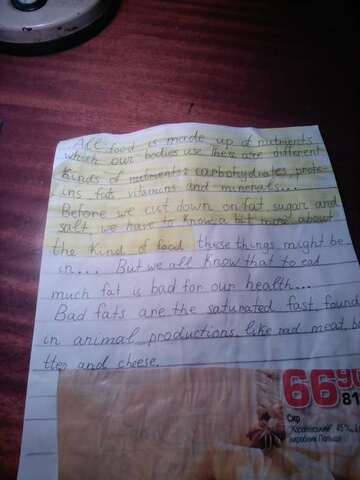 All food is made up of nutrients
which our bodies use. There are different
kinds of nutrients: carbohydrates, prote-
ins, fats vitamins and minerals...
Before we cut down on fat, sugar and
salt, we have to know a bit more about
the kind of food these things might be
in... But we all know that to eat
much fat is bad for our health...
Bad fats are the saturated fast, found
in animal productions, like red meat, bu
tter and cheese.
66 90
81
Сир
45%,
виробник Польща